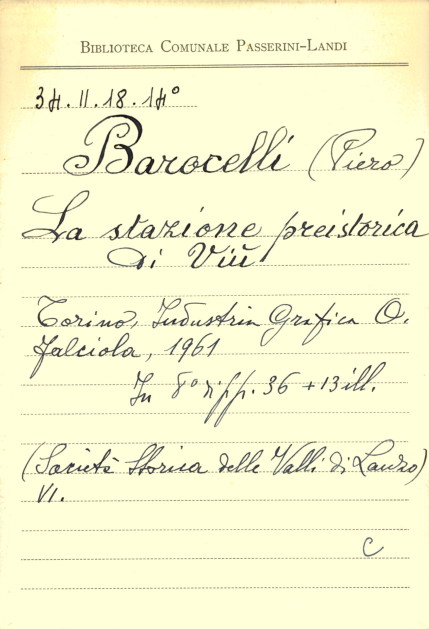 BIBLIOTECA COMUNALE PASSERINI-LANDI
34.II.18.14°
Barocelli (Piero)
La stazione preistorica
di Viù
Torino, Industria Grafica O.
Falciola, 1961
In 8° di pp. 36 + 13 ill.
(Società Storica delle Valli di Lanzo)
VI.
C